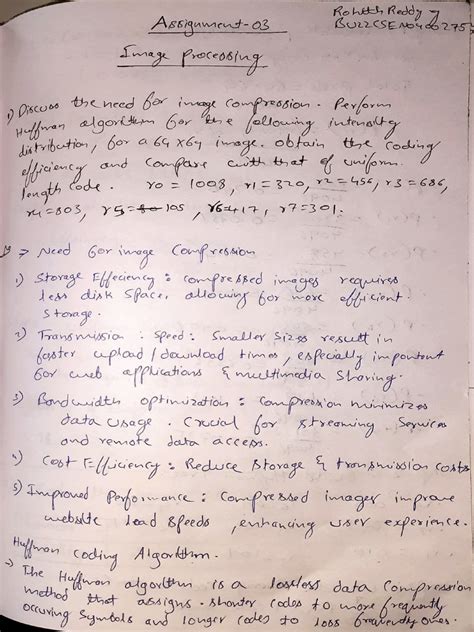 Assignment-03
Rohith Reddy y
Image processing
1) Discuss the need for image compression. Perform
Huffman algorithm for the following intensity
distribution, for a 64x64 image. obtain the coding
efficiency and compare with that of uniform
length code. r0 = 1008, r1 = 320, r2 = 456, r3 = 686,
r4 = 803, r5 = 105, r6=417, r7=301.
=> Need for image Compression
1) Storage Effeciency : compressed images requires
less disk space, allowing for more efficient
storage.
2) Transmission : speed : Smaller sizes result in
faster upload / download times, especially important
for web applications & multimedia sharing.
3) Bandwidth optimization : compression minimizes
data usage. Crucial for streaming services
and remote data access.
4) Cost Efficiency : Reduce storage & transmission costs
5) Improved Performance : Compressed images improve
website load speeds, enhancing user experience.
Huffman coding Algorithm.
→ The Huffman algorithm is a lossless data compression
method that assigns shorter codes to more frequently
occuring symbols and longer codes to less frequently ones.